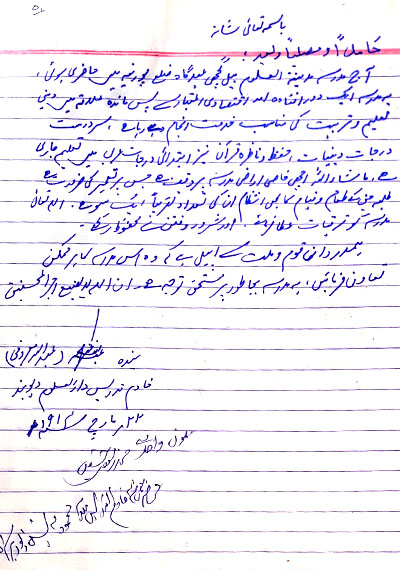 باسمہ تعالیٰ شانہ
حامداً و مصلیاً و بعد!
آج مدرسہ مدینۃ العلوم عیدگاہ ضلع میں حاضری ہوئی،
یہ مدرسہ ایک دور افتادہ اور اقتصادی اعتبار سے پس ماندہ علاقہ میں دینی
تعلیم و تربیت کی مناسب خدمت انجام دے رہا ہے، سردست
درجات دینیات، حفظ و ناظرہ قرآن نیز ابتدائی درجات میں تعلیم جاری
ہے، ماشاء اللہ اچھی خاصی اراضی مدرسہ پر وقف ہے جس پر تعمیر کی ضرورت ہے
طلبہ جن کے طعام و قیام کا بھی انتظام ان کی تعداد تقریباً ایک سو ہے۔ اللہ تعالیٰ
مدرسہ کو ترقیات عطا فرمائے، اور شرور و فتن سے محفوظ رکھے۔
ہمدردان قوم و ملت سے اپیل ہے کہ وہ اس مدرسہ کا ہر ممکن
تعاون فرمائیں، یہ مدرسہ بجا طور پر مستحق توجہ ہے۔ ان اللہ لا یضیع اجر المحسنین
بندہ
خادم تدریس دارالعلوم دیوبند
۲۲ مارچ